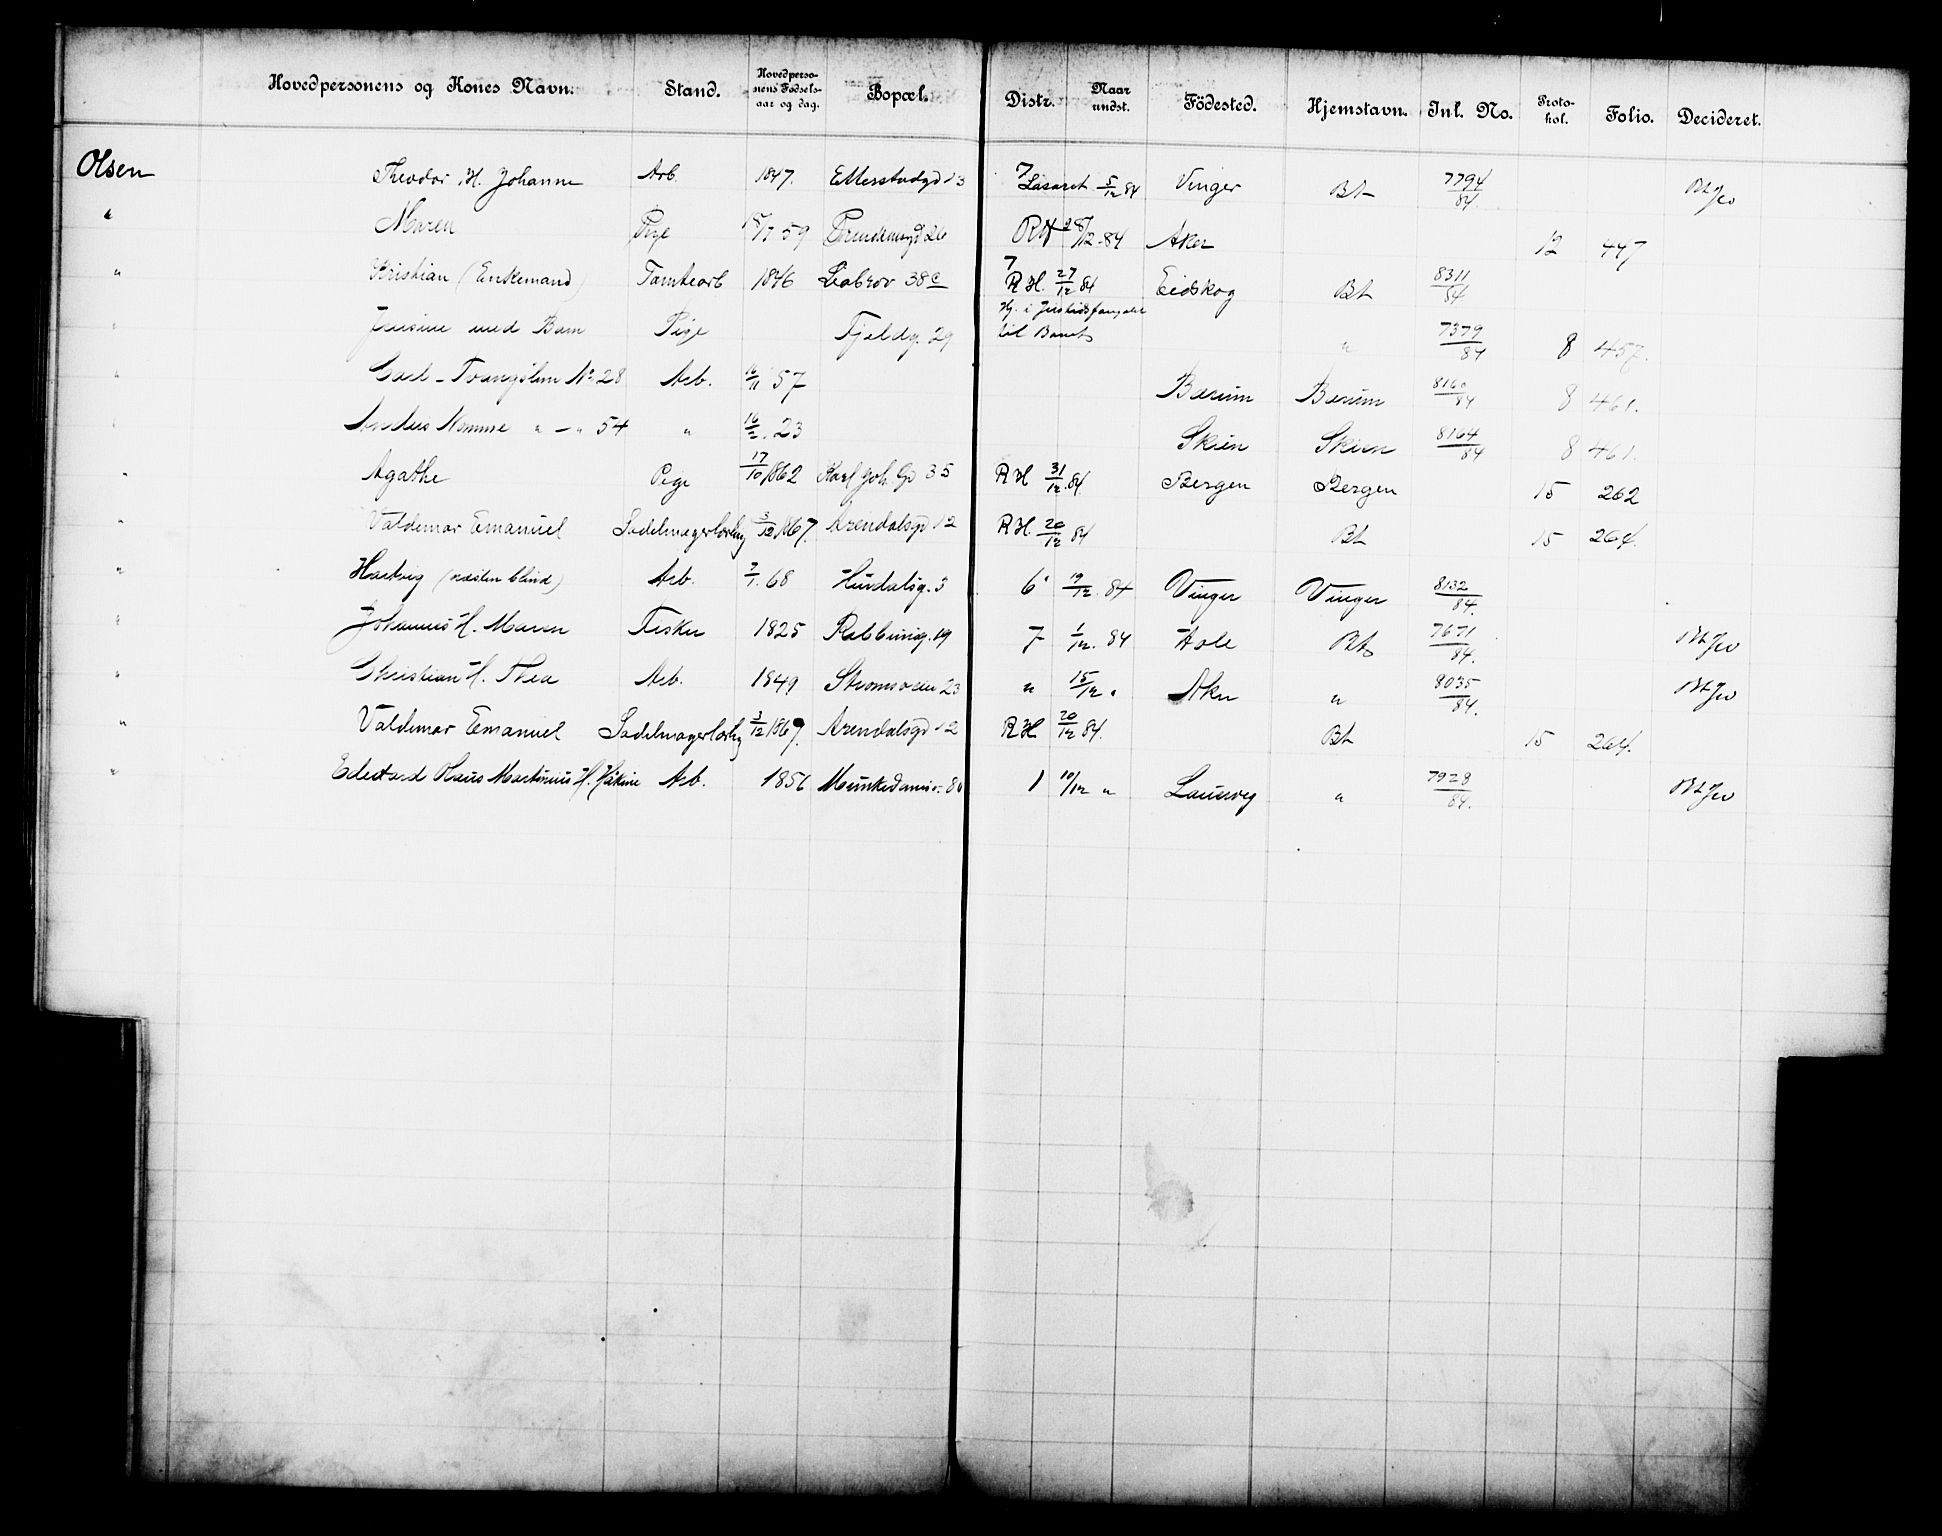 Hovedpersonens og Kones Navn. Stand. Hovedpersonens Fødselsaar og dag. Bopæl. Distr. Naar undst. Födested. Hjemstavn. Inl. No. Protokol. Folio. Decideret.
Olsen Theodor H. Johanne Arb. 1847. Etterstadgd 13 7 Lasaret 5/12 84 Vinger Bt 7794/84.
" Maren Pige 59 26 RH 28/12 84 Aker 12 447
" Kristian (Enkemand) Tomtearb 1846 Liabrov 38c 7 R.H. 27/12 84 Eidskog Bt 8311/84
" med Barn Pige Fjeldg. 29 til Barnet " 7379/84 8 457.
" Carl - Tvangslem No 28 Arb. 16/11 57 Bærum Bærum 8160/84 8 461.
" Anders " - " 54 " 23 Skien Skien 8164/84 8 461.
" Agathe Pige 17/10 1862 Karl Joh. Gd 35 R H 31/12 84. Bergen Bergen 15 262
" Valdemar Emanuel Sadelmagerlærling 3/12 1867. Arendalsgd 12 R.H. 20/12 84 Bt 15 264.
" Hartvig (næsten blind) Arb. 68 Hurdalsg. 3 6 19/12. 84 Vinger Vinger 8132/84.
" Johannes H. Maren Fisker 1825 19 7 1/12. 84 Hole Bt 7671/84.
" Christian H. Thea Arb. 1849 Strømsveien 23 " 15/12 " Aker " 8035/84.
" Valdemar Emanuel Sadelmagerlærling 3/12 1867. Arendalsgd 12 R H 20/12 84. Bt 15 264.
" Edevard Olaus Martinius H. Arb. 1856 Munkedamsv. 1 10/12 " Laurvig " 7928/84.